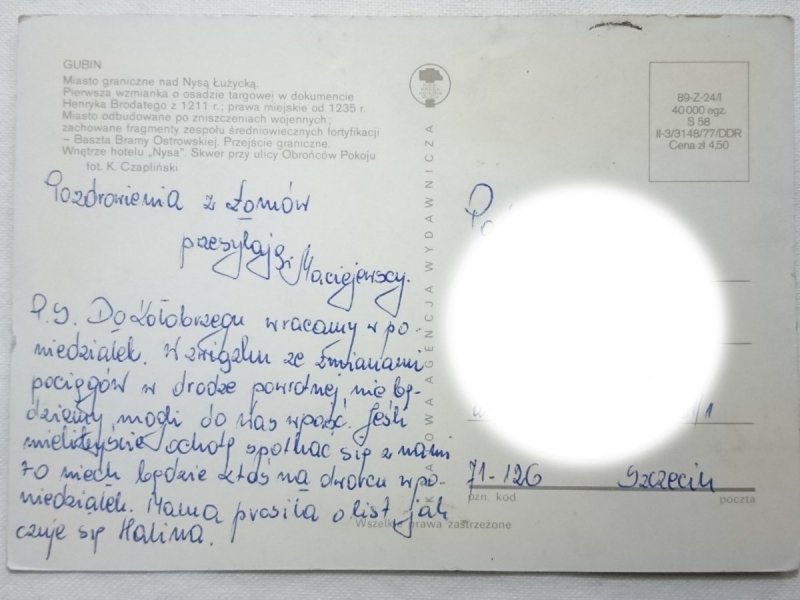 GUBIN
Miasto graniczne nad Nysą Łużycką.
Pierwsza wzmianka o osadzie targowej w dokumencie
Henryka Brodatego z 1211 r.; prawa miejskie od 1235 r.
Miasto odbudowane po zniszczeniach wojennych;
zachowane fragmenty zespołu średniowiecznych fortyfikacji
– Baszta Bramy Ostrowskiej. Przejście graniczne.
Wnętrze hotelu „Nysa”. Skwer przy ulicy Obrońców Pokoju
fot. K. Czapliński
Pozdrowienia z Łomów
przesyłają
Maciejewscy.
P.S. Do Kołobrzegu wracamy w po-
niedziałek. W związku ze zmianami
pociągów w drodze powrotnej nie bę-
dziemy mogli do Was wpaść. Jeśli
mielibyście ochotę spotkać się z nami
to niech będzie ktoś na dworcu w po-
niedziałek. Mama prosiła o list jak
czuje się Halina.
KRAJOWA AGENCJA WYDAWNICZA
89-Z-24/I
40 000 egz.
S 58
II-3/3148/77/DDR
Cena zł 4,50
71-126 Szczecin
pzn. kod poczta
Wszelkie prawa zastrzeżone